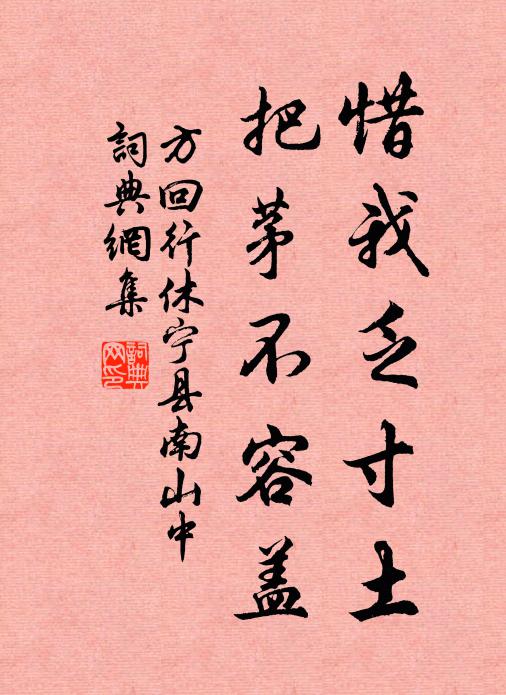 惜我乏寸土
把茅不容盖
方回行休宁县南山中
詞典網集
詞典网印